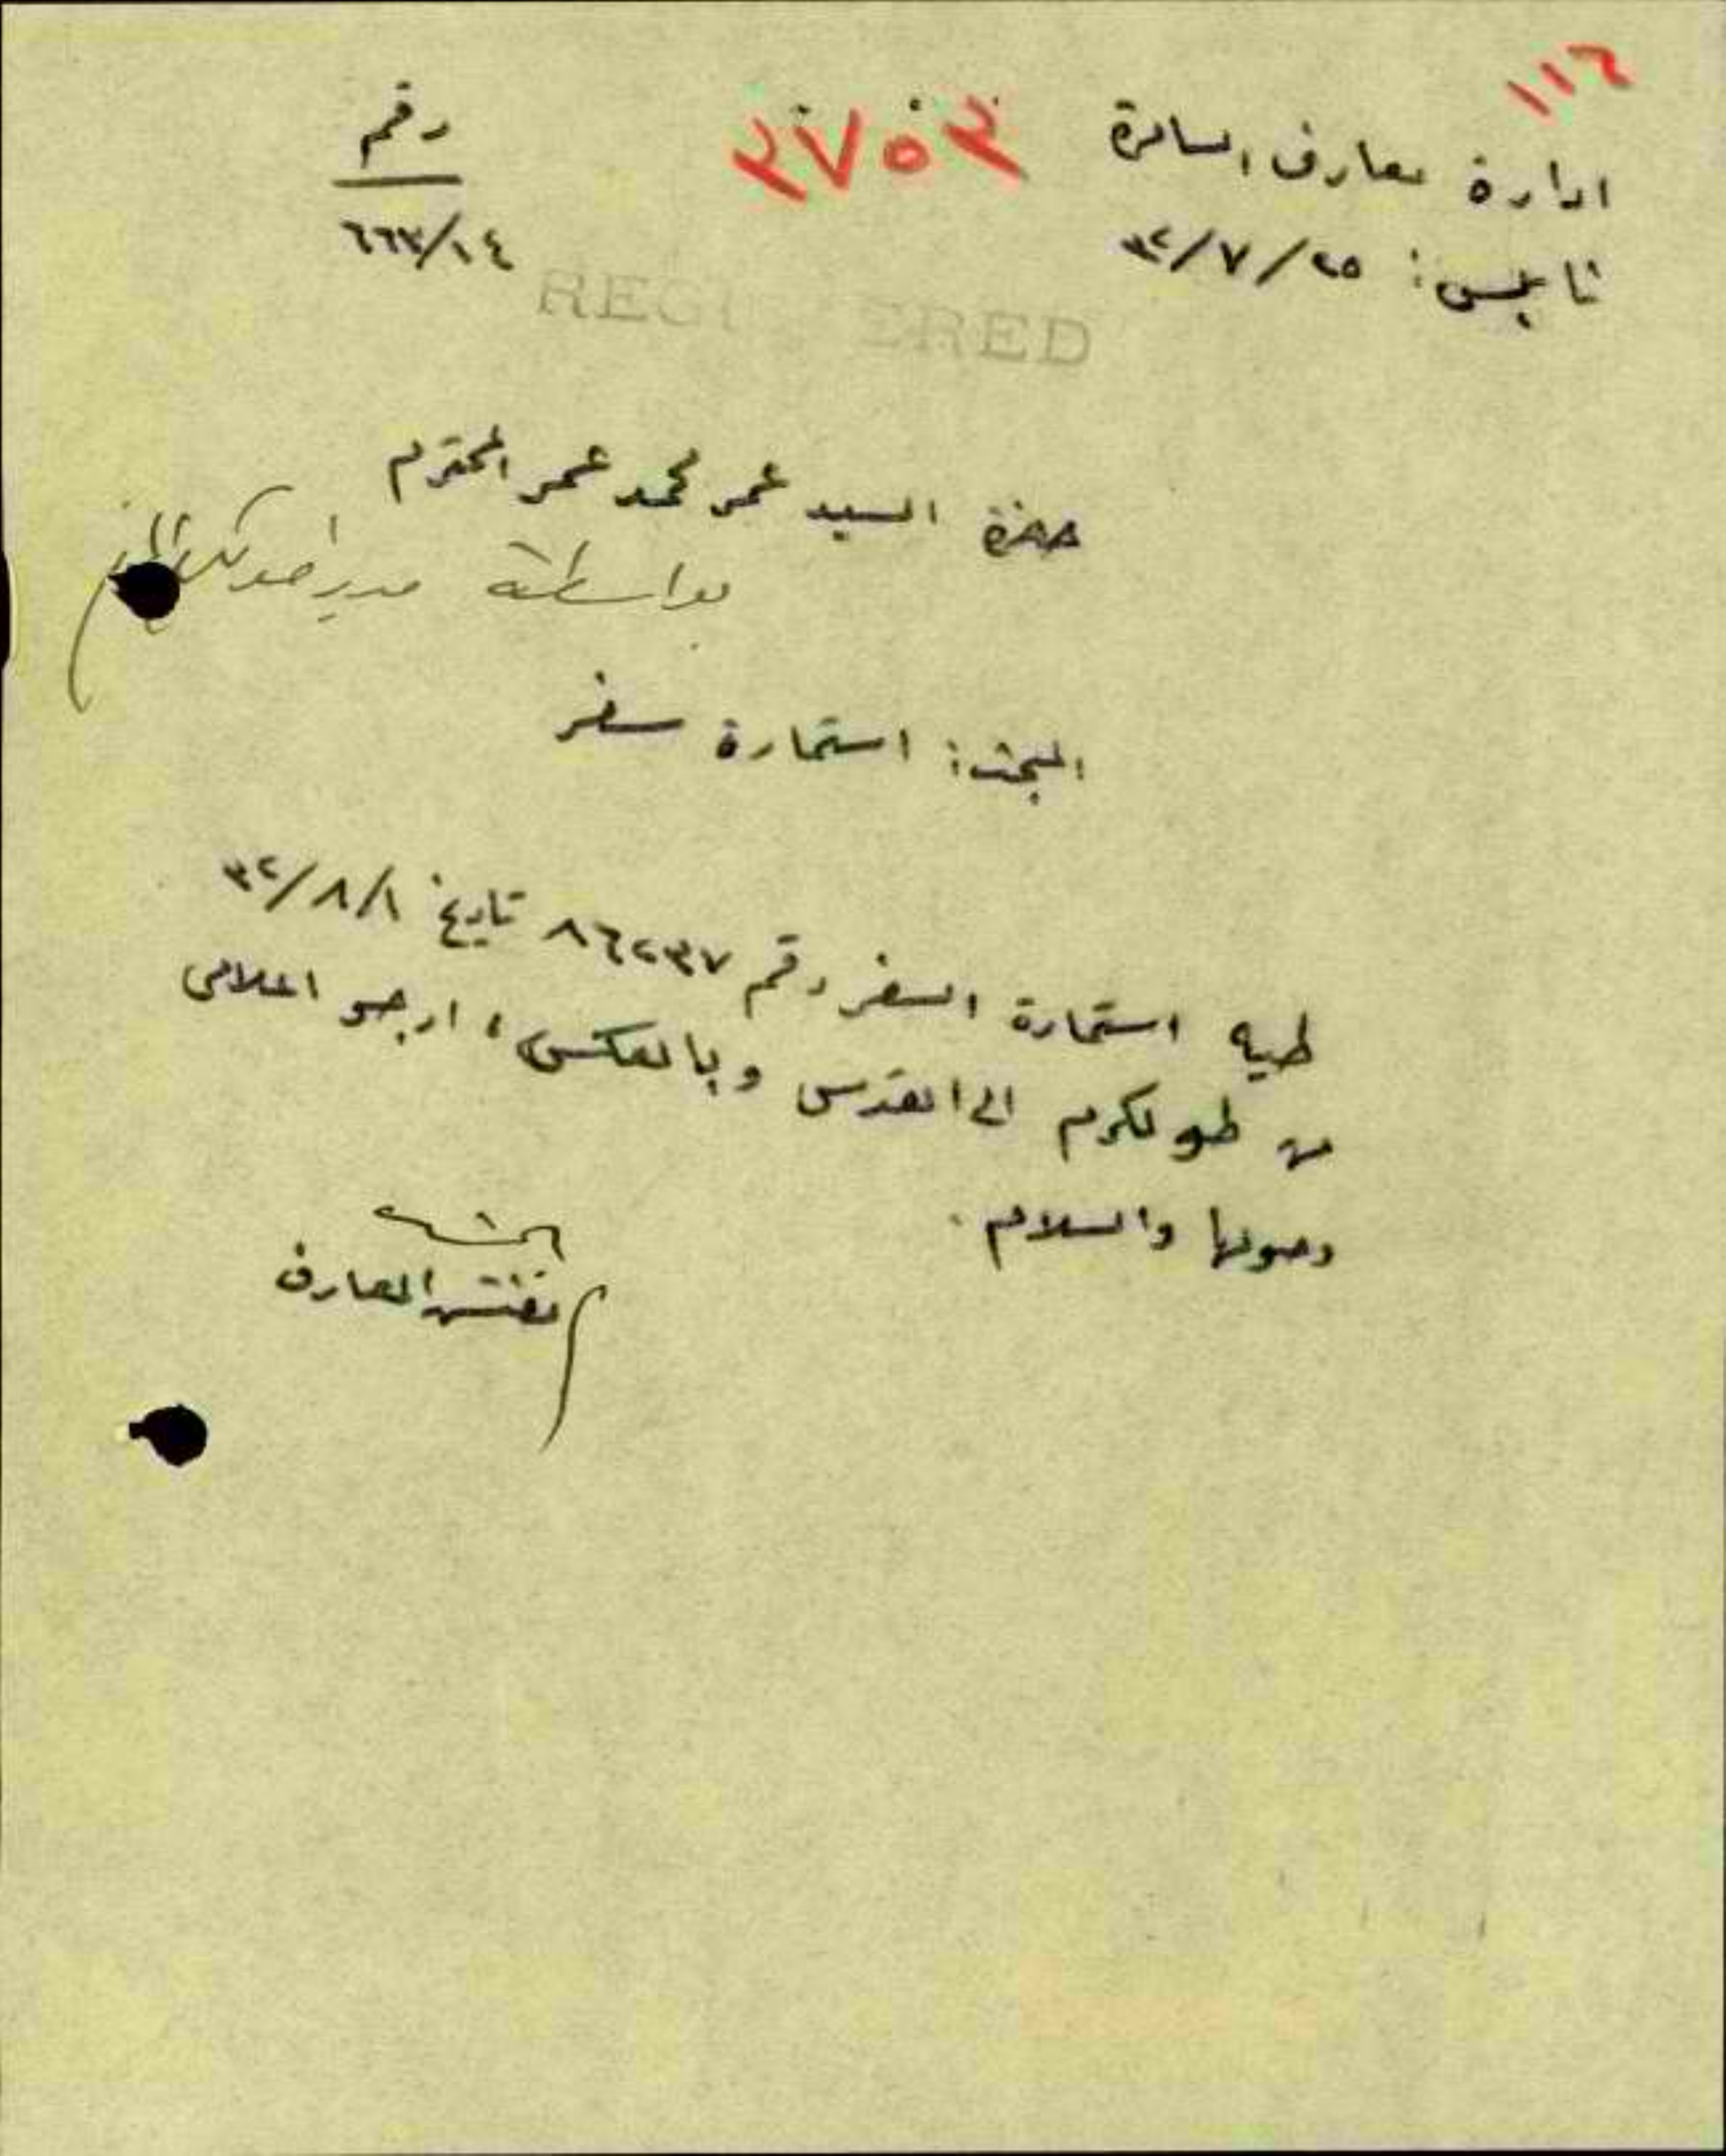 ١١٦
ادارة معارف السامرة
٣٧٥٣
رقم
٦٦٣/١٤
نابلس: ٢٥/٧/٣٢
REGI ERED
حضرة السيد عمر محمد عمر المحترم
بواسطة مدير
المبحث: استمارة سفر
طيه استمارة السفر رقم ٨٦٢٣٧ تاريخ ٣٢/٨/١
من طولكرم الى القدس وبالعكس، ارجو اعلامي
وصولها والسلام.
مفتش المعارف